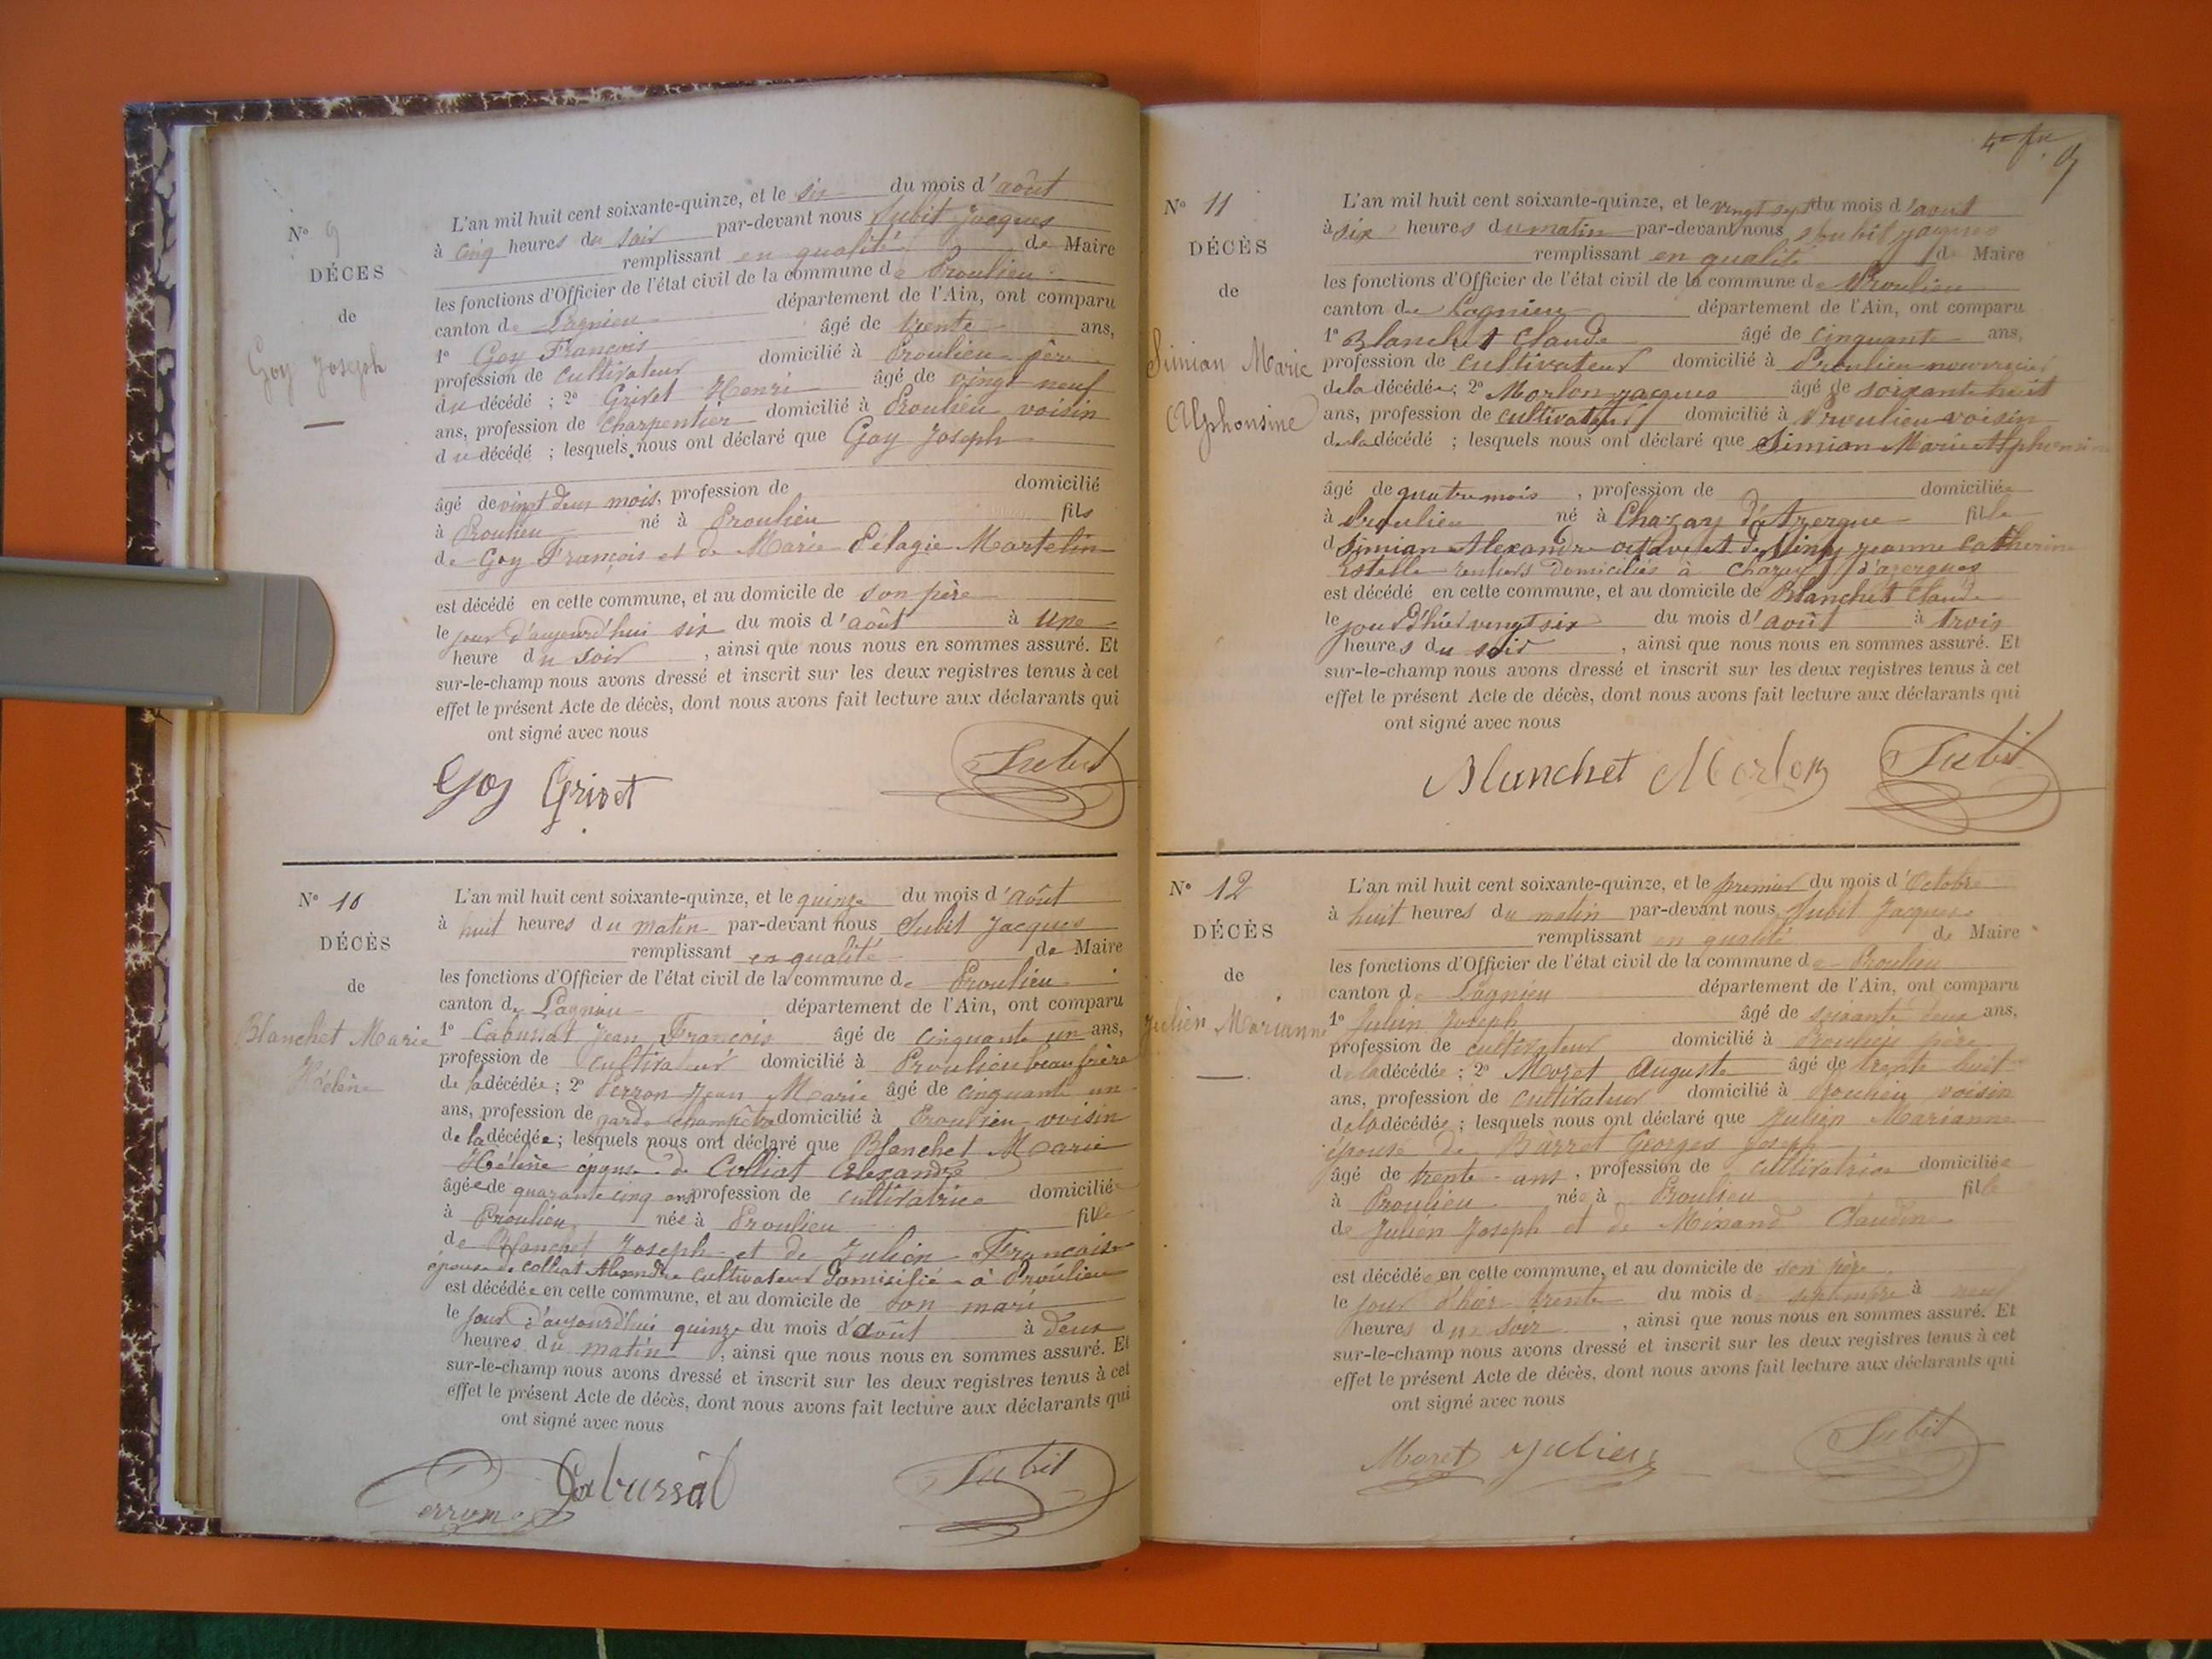 N° 9
DÉCES
de
Goy Joseph
L'an mil huit cent soixante-quinze, et le six du mois d'août
à cinq heures du soir par-devant nous Subit Jacques
remplissant en qualité de Maire
les fonctions d'Officier de l'état civil de la commune de Proulieu
canton de Lagnieu département de l'Ain, ont comparu
1° Goy François âgé de trente ans,
profession de cultivateur domicilié à Proulieu père
du décédé ; 2° Grivet Henri âgé de vingt neuf
ans, profession de charpentier domicilié à Proulieu voisin
du décédé ; lesquels nous ont déclaré que Goy Joseph
âgé de vingt deux mois, profession de domicilié
à Proulieu né à Proulieu fils
de Goy François et de Marie Pélagie Martelin
est décédé en cette commune, et au domicile de son père
le jour d'aujourd'hui six du mois d'août à une
heure du soir, ainsi que nous nous en sommes assuré. Et
sur-le-champ nous avons dressé et inscrit sur les deux registres tenus à cet
effet le présent Acte de décès, dont nous avons fait lecture aux déclarants qui
ont signé avec nous
Goy Grivet Subit
N° 10
DÉCÈS
de
Blanchet Marie
Hélène
L'an mil huit cent soixante-quinze, et le quinze du mois d'août
à huit heures du matin par-devant nous Subit Jacques
remplissant en qualité de Maire
les fonctions d'Officier de l'état civil de la commune de Proulieu
canton de Lagnieu département de l'Ain, ont comparu
1° Cabussat Jean François âgé de cinquante un ans,
profession de cultivateur domicilié à Proulieu beau frère
de la décédée ; 2° Perron Jean Marie âgé de cinquante un
ans, profession de garde champêtre domicilié à Proulieu voisin
de la décédée ; lesquels nous ont déclaré que Blanchet Marie
Hélène épouse de Colliat Alexandre
âgée de quarante cinq ans profession de cultivatrice domiciliée
à Proulieu née à Proulieu fille
de Blanchet Joseph et de Julien Françoise
épouse de Colliat Alexandre cultivateur domicilié à Proulieu
est décédée en cette commune, et au domicile de son mari
le jour d'aujourd'hui quinze du mois d'août à deux
heures du matin, ainsi que nous nous en sommes assuré. Et
sur-le-champ nous avons dressé et inscrit sur les deux registres tenus à cet
effet le présent Acte de décès, dont nous avons fait lecture aux déclarants qui
ont signé avec nous
Perron Cabussat Subit
9
N° 11
DÉCÈS
de
Simian Marie
Alphonsine
L'an mil huit cent soixante-quinze, et le vingt sept du mois d'aout
à six heures du matin par-devant nous Subit jacques
remplissant en qualité de Maire
les fonctions d'Officier de l'état civil de la commune de Proulieu
canton de Lagnieu département de l'Ain, ont comparu
1° Blanchet Claude âgé de cinquante ans,
profession de cultivateur domicilié à Proulieu nourricier
de la décédée ; 2° Morlon jacques âgé de soixante huit
ans, profession de cultivateur domicilié à Proulieu voisin
de la décédé ; lesquels nous ont déclaré que Simian Marie Alphonsine
âgé de quatre mois, profession de domiciliée
à Proulieu né à Chazay d'Azergue fille
d Simian Alexandre octave et de jeanne Catherine
Estelle rentiers domiciliés à Chazay d'azergues
est décédé en cette commune, et au domicile de Blanchet Claude
le jour d'hier vingt six du mois d'août à trois
heures du soir, ainsi que nous nous en sommes assuré. Et
sur-le-champ nous avons dressé et inscrit sur les deux registres tenus à cet
effet le présent Acte de décès, dont nous avons fait lecture aux déclarants qui
ont signé avec nous
Blanchet Morlon Subit
N° 12
DÉCÈS
de
Julien Marianne
L'an mil huit cent soixante-quinze, et le premier du mois d'Octobre
à huit heures du matin par-devant nous Subit Jacques
remplissant en qualité de Maire
les fonctions d'Officier de l'état civil de la commune de Proulieu
canton de Lagnieu département de l'Ain, ont comparu
1° Julien Joseph âgé de soixante deux ans,
profession de cultivateur domicilié à Proulieu père
de la décédée ; 2° Moret Auguste âgé de trente huit
ans, profession de cultivateur domicilié à Proulieu voisin
de la décédée ; lesquels nous ont déclaré que Julien Marianne
épouse de Barret Georges Joseph
âgé de trente ans, profession de cultivatrice domiciliée
à Proulieu née à Proulieu fille
de Julien Joseph et de Minand Claudine
est décédée en cette commune, et au domicile de son père
le jour d'hier trente du mois de septembre à neuf
heures du soir, ainsi que nous nous en sommes assuré. Et
sur-le-champ nous avons dressé et inscrit sur les deux registres tenus à cet
effet le présent Acte de décès, dont nous avons fait lecture aux déclarants qui
ont signé avec nous
Moret Julien Subit